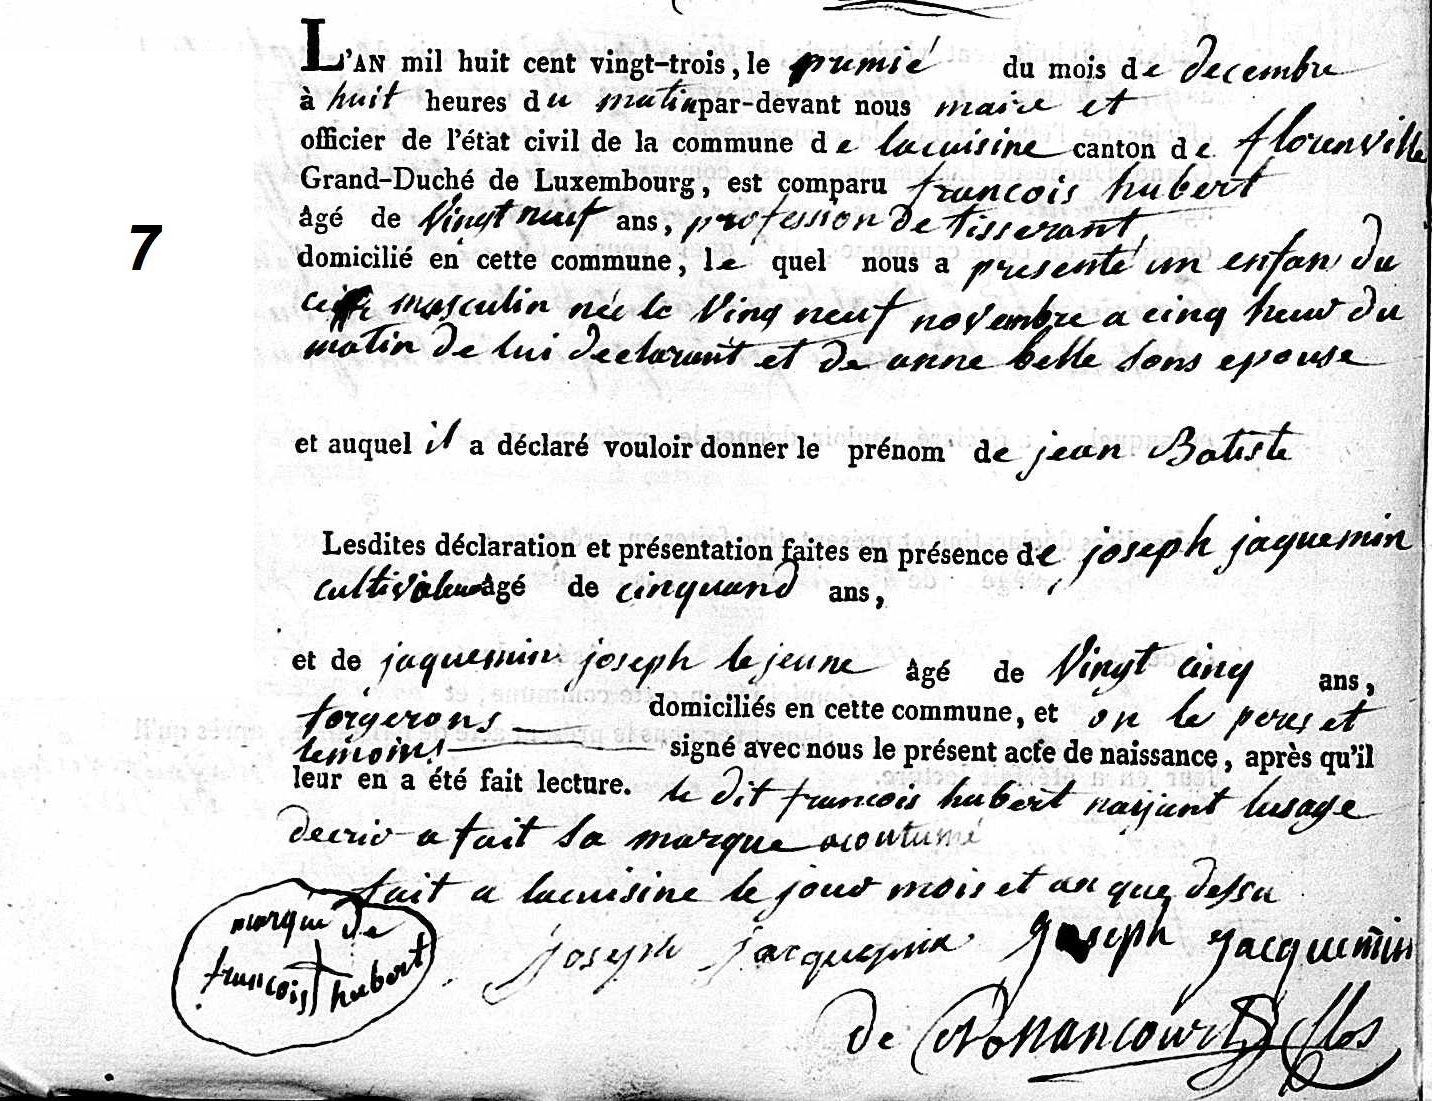 L'AN mil huit cent vingt-trois, le premié du mois de decembre
à huit heures du matin par-devant nous maire et
officier de l'état civil de la commune de lacuisine canton de florenville
Grand-Duché de Luxembourg, est comparu francois hubert
âgé de Vingt neuf ans, profession de tisserant
7
domicilié en cette commune, le quel nous a presenté un enfan du
masculin née le Vinq neuf novembre a cinq heur du
matin de lui declarant et de anne belle sons epouse
et auquel il a déclaré vouloir donner le prénom de jean Batiste
Lesdites déclaration et présentation faites en présence de joseph jaquemin
cultivateur âgé de cinquand ans,
et de jaquemin joseph le jeune âgé de Vingt cinq ans,
forgerons domiciliés en cette commune, et on le peres et
temoins signé avec nous le présent acte de naissance, après qu'il
leur en a été fait lecture. le dit francois hubert naijant lusage
decrir a fait sa marque acoutumé
fait a lacuisine le jour mois et an que dessu
marque de
francois hubert
joseph jacquemin Joseph Jacquemin
de Nonancourt